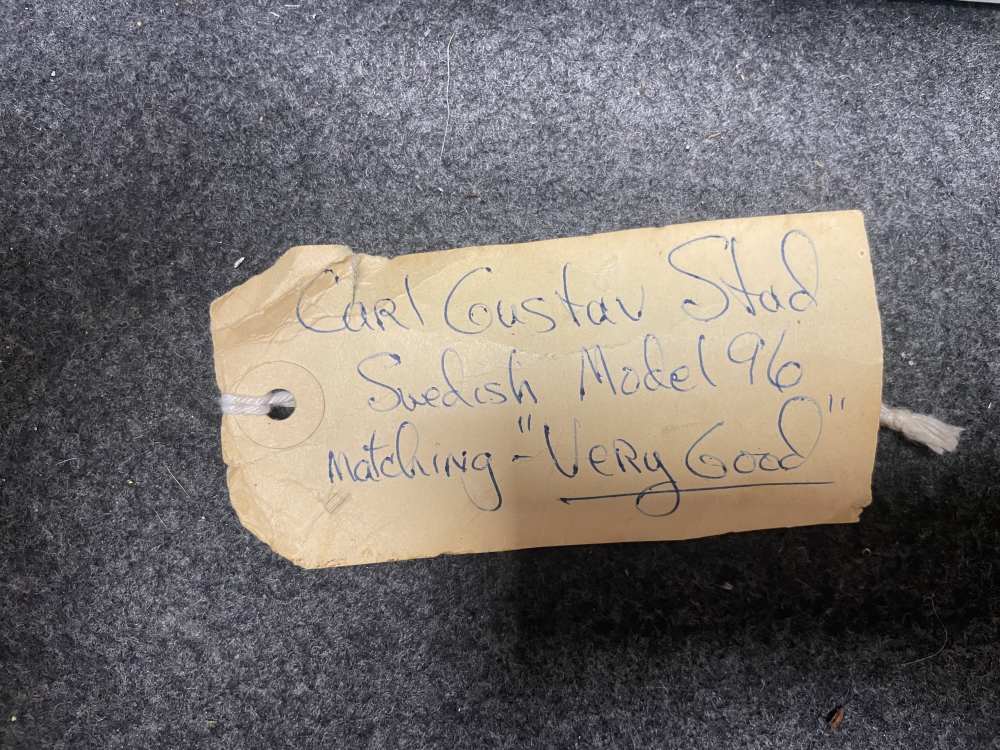 Carl Gustav Stad
Swedish Model 96
matching - "Very Good"